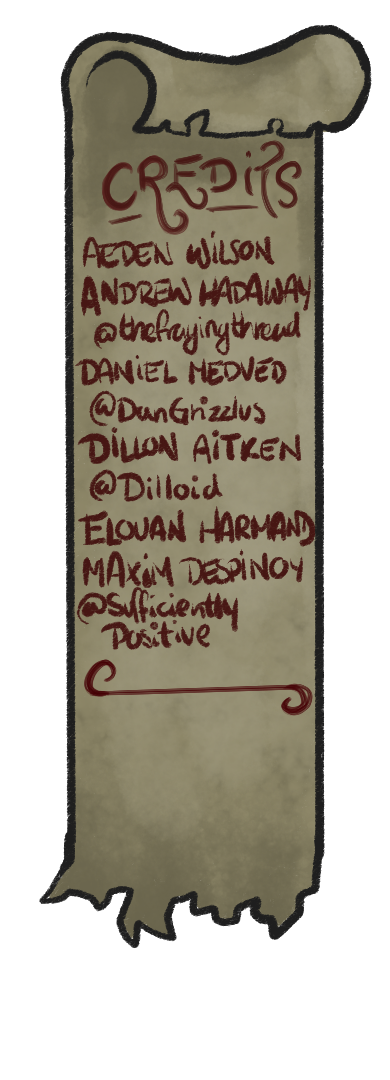 CREDiTS
AEDEN WiLSON
ANDREW HADAWAY
@thefrayingthread
DANiEL MEDVED
@DanGrizzlus
DiLLON AiTKEN
@Dilloid
ELOUAN HARMAND
MAxiM DESPiNOY
@Sufficiently
Positive